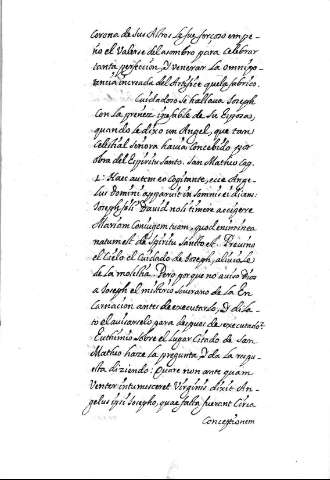 Corona de sus Astros le fue forçoso empe-
ño el Valerse del asombro para Celebrar
tanta perfeccion, y venerar la omnipo-
tencia increada del Artifice que la fabrico.
Cuidadoso se hallava Joseph
Con la preñez inefable de su Esposa,
quando le dixo un Angel, que tan
Celestial Señora havia Concebido por
obra del Espiritu Santo. San Matheo Cap.
1. Haec autem eo Cogitante, ecce Ange-
lus Domini apparuit in somnis ei dicens:
Joseph fili David noli timere accipere
Mariam Conjugem tuam, quod enim in ea
natum est de Spiritu sancto est. Previno
el Cielo el Cuidado de Joseph, alivióle
de la molestia. Pero porque no aviso Dios
a Joseph el misterio soverano de la En-
Carnacion antes de executarlo, y dila-
to el avisarselo para despues de executado?
Euthimio sobre el lugar Citado de San
Matheo haze la pregunta, y da la respu-
esta diziendo: Quare non ante quam
Venter intumesceret Virginis dixit An-
gelus ipsi Josepho, quae facta fuerant Circa
Conceptionem